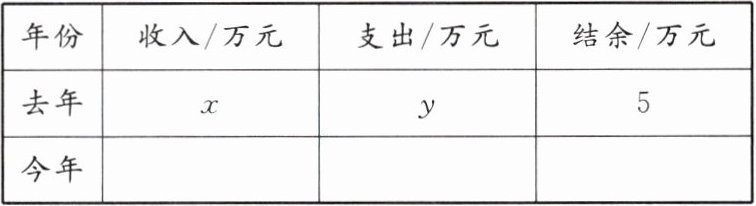 年份 收入/万元 支出/万元 结余/万元
去年 x y 5
今年